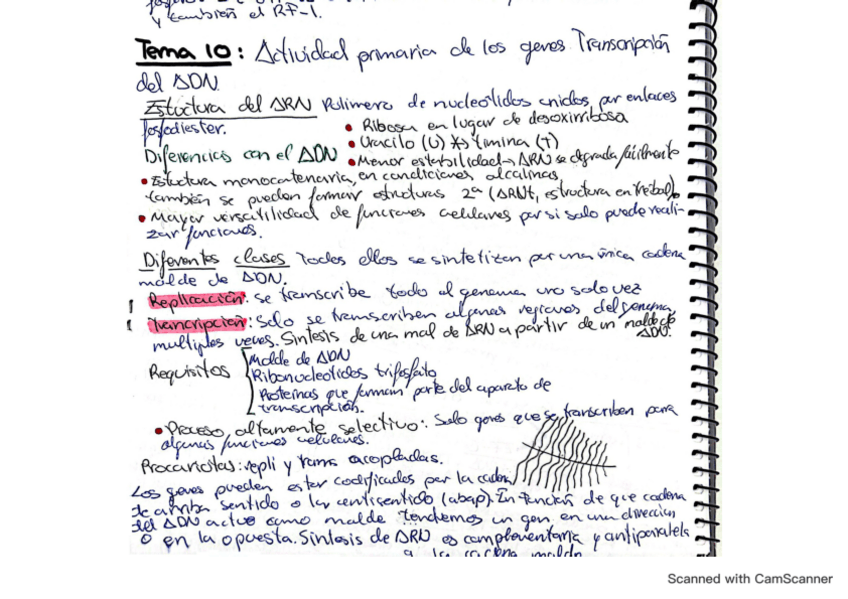 y también el RF-1.
Tema 10: Actividad primaria de los genes Transcripción
del ADN.
Estuctura del ARN Polimero de nucleótidos unidos por enlaces
fosfodiester.
• Ribosa en lugar de desoxirribosa
• Uracilo (U) timina (T)
Diferencias con el ADN • Menor estabilidad → ARN se degrada facilmente
• Estuctura monocatenaria, en condiciones alcalinas
también se pueden formar estructuras 2ª (ARNt, estructura en trebol).
• Mayor versatilidad de funciones celulares por si solo puede reali-
zar funciones.
Diferentes clases Todos ellos se sintetizan por una única cadena
molde de ADN.
Replicación: se transcribe todo el genoma una sola vez
Trancripción: Solo se transcriben algunas regiones del genoma
multiples veces. Síntesis de una mol de ARN a partir de un molde de
ADN.
Requisitos Molde de ADN
Ribonucleotidos trifosfato
Proteinas que forman parte del aparato de
transcripción.
• Proceso altamente selectivo: Solo genes que se transcriben para
algunas funciones celulares.
Procariotas: repli y trans acopladas.
Los genes pueden estar codificados por la cadena
de arriba sentido o la antisentido (abajo). En función de que cadena
del ADN actue como molde tendremos un gen en una dirección
o en la opuesta. Síntesis de ARN es complementaria y antiparalela
a la cadena molde
Scanned with CamScanner